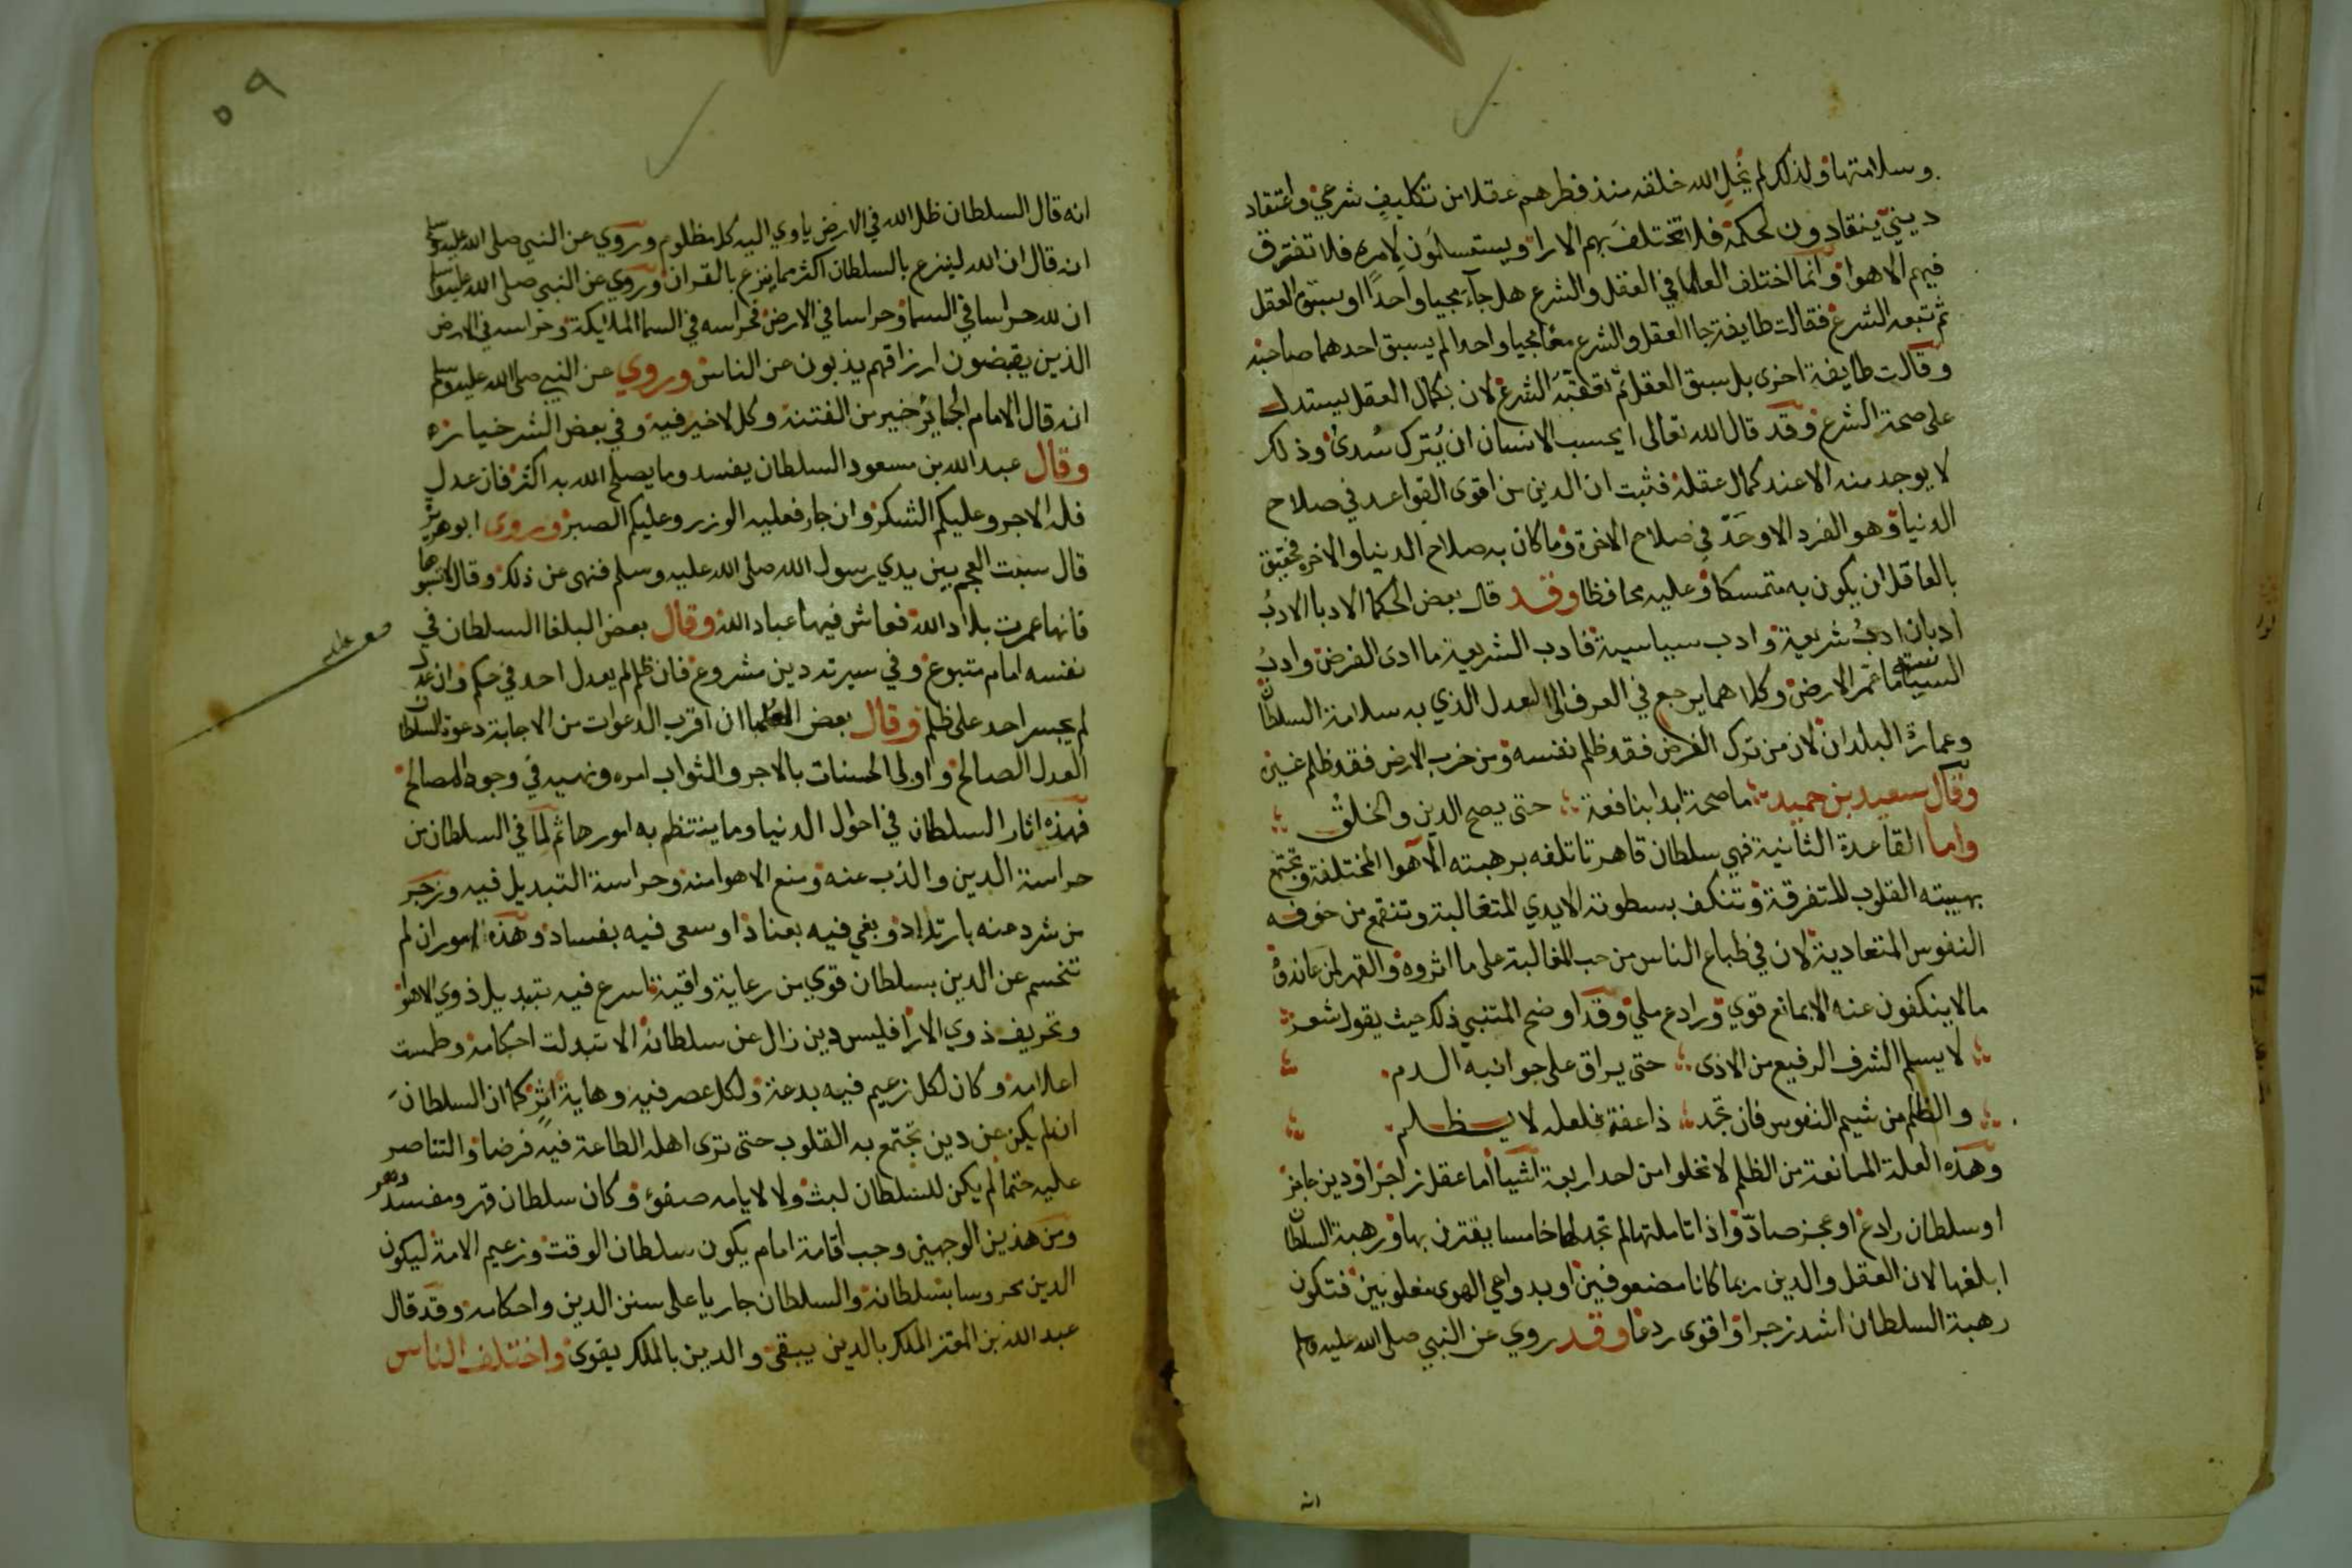 وسلامتها ولذلك لم يخل الله خلقه منذ فطرهم عقلا من تكليف شرعي واعتقاد
ديني ينقادون لحكمه فلا تختلف بهم الارا ويستسلمون لامره فلا تفترق
فيهم الاهوا وانما اختلف العلما في العقل والشرع هل جآء مجيا واحدًا او سبق العقل
ثم تبعه الشرع فقالت طايفة جا العقل والشرع معًا مجيا واحدا لم يسبق احدهما صاحبه
وقالت طايفة اخرى بل سبق العقل ثم تعقبه الشرع لان بكمال العقل يستدل
على صحة الشرع وقد قال الله تعالى ايحسب الانسان ان يُترك سُدى وذلك
لا يوجد منه الا عند كمال عقله فثبت ان الدين من اقوى القواعد في صلاح
الدنيا وهو الفرد الاوحَدّ في صلاح الاخرة وما كان به صلاح الدنيا والاخره فحقيق
بالعاقل ان يكون به متمسكا وعليه محافظا وقد قال بعض الحكما الادبا الادبُ
ادبان ادبُ شريعة وادب سياسية فادب الشريعة ما ادى الفرض وادبُ
السياسة ما عمر الارض وكلاهما يرجع في العرف الى العدل الذي به سلامة السلطان
وعمارة البلدان لان من ترك الفرض فقد ظلم نفسه ومن خرب الارض فقد ظلم غيره
وقال سعيد بن حميد ما صحة ابدا بنافعة حتى يصح الدين والخلقُ
واما القاعدة الثانية فهي سلطان قاهر تاتلفه برهبته الاهوا المختلفة وتجتمع
بهيبته القلوب المتفرقة وتنكف بسطوته الايدي المتغالبة وتنقمع من خوفه
النفوس المتعادية لان في طباع الناس من حب المغالبة على ما اثروه والقهر لمن عاندوه
ما لا ينكفون عنه الا بمانع قوي ورادع ملي وقد اوضح المتنبي ذلك حيث يقول شعر
لا يسلم الشرف الرفيع من الاذى حتى يراق على جوانبه الدم
والظلم من شيم النفوس فان تجد ذا عفة فلعله لا يظلم
وهذه العلة المانعة من الظلم لا تخلوا من احد اربعة اشيا اما عقل زاجر او دين حاجز
او سلطان رادع او عجز صادّ واذا تاملتها لم تجد لها خامسا يقترن بها ورهبة السلطان
ابلغها لان العقل والدين ربما كانا مضعوفين او بدواعي الهوى مغلوبين فتكون
رهبة السلطان اشد زجرا واقوى ردعا وقد روي عن النبي صلى الله عليه وسلم
انه
٥٩
انه قال السلطان ظل الله في الارض ياوي اليه كل مظلوم وروي عن النبي صلى الله عليه وسلم
انه قال ان الله ليزع بالسلطان اكثر مما يزع بالقران وروي عن النبي صلى الله عليه وسلم
ان لله حراسا في السما وحراسا في الارض فحراسه في السما الملايكة وحراسه في الارض
الذين يقبضون ارزاقهم يذبون عن الناس وروي عن النبي صلى الله عليه وسلم
انه قال الامام الجائر خير من الفتنة وكل لا خير فيه وفي بعض الشر خيارٌ
وقال عبد الله بن مسعود السلطان يفسد وما يصلح الله به اكثر فان عدل
فله الاجر وعليكم الشكر وان جار فعليه الوزر وعليكم الصبر وروى ابو هريرة
قال سبت العجم بين يدي رسول الله صلى الله عليه وسلم فنهى عن ذلك وقال لا تسبوها
فانها عمرت بلاد الله فعاش فيها عباد الله وقال بعض البلغا السلطان في
نفسه امام متبوع وفي سيرته دين مشروع فان ظلم لم يعدل احد في حكم وان عدل
لم يجسر احد على ظلم وقال بعض العلما ان اقرب الدعوات من الاجابة دعوة السلطان
العدل الصالح واولى الحسنات بالاجر والثواب امره ونهيه في وجوه المصالح
فهذه اثار السلطان في احوال الدنيا وما ينتظم به امورها ثم لما في السلطان من
حراسة الدين والذب عنه ومنع الاهوا منه وحراسة التبديل فيه وزجر
من شرد عنه بارتداد وبغي فيه بعناد او سعى فيه بفساد وهذه امور ان لم
تنحسم عن الدين بسلطان قوي من رعاية واقية اسرع فيه تبديل ذوي الاهوا
وتحريف ذوي الارا فليس دين زال عن سلطانه الا تبدلت احكامه وطمست
اعلامه وكان لكل زعيم فيه بدعة ولكل عصر فيه وهاية اثر كما ان السلطان
ان لم يكن عن دين تجتمع به القلوب حتى ترى اهله الطاعة فيه فرضا والتناصر
عليه حتما لم يكن للسلطان لبث ولا لايامه صفو وكان سلطان قهر ومفسد دهر
ومن هذين الوجهين وجب اقامة امام يكون سلطان الوقت وزعيم الامة ليكون
الدين محروسا بسلطانه والسلطان جاريا على سنن الدين واحكامه وقد قال
عبد الله بن المعتز الملك بالدين يبقى والدين بالملك يقوى واختلف الناس